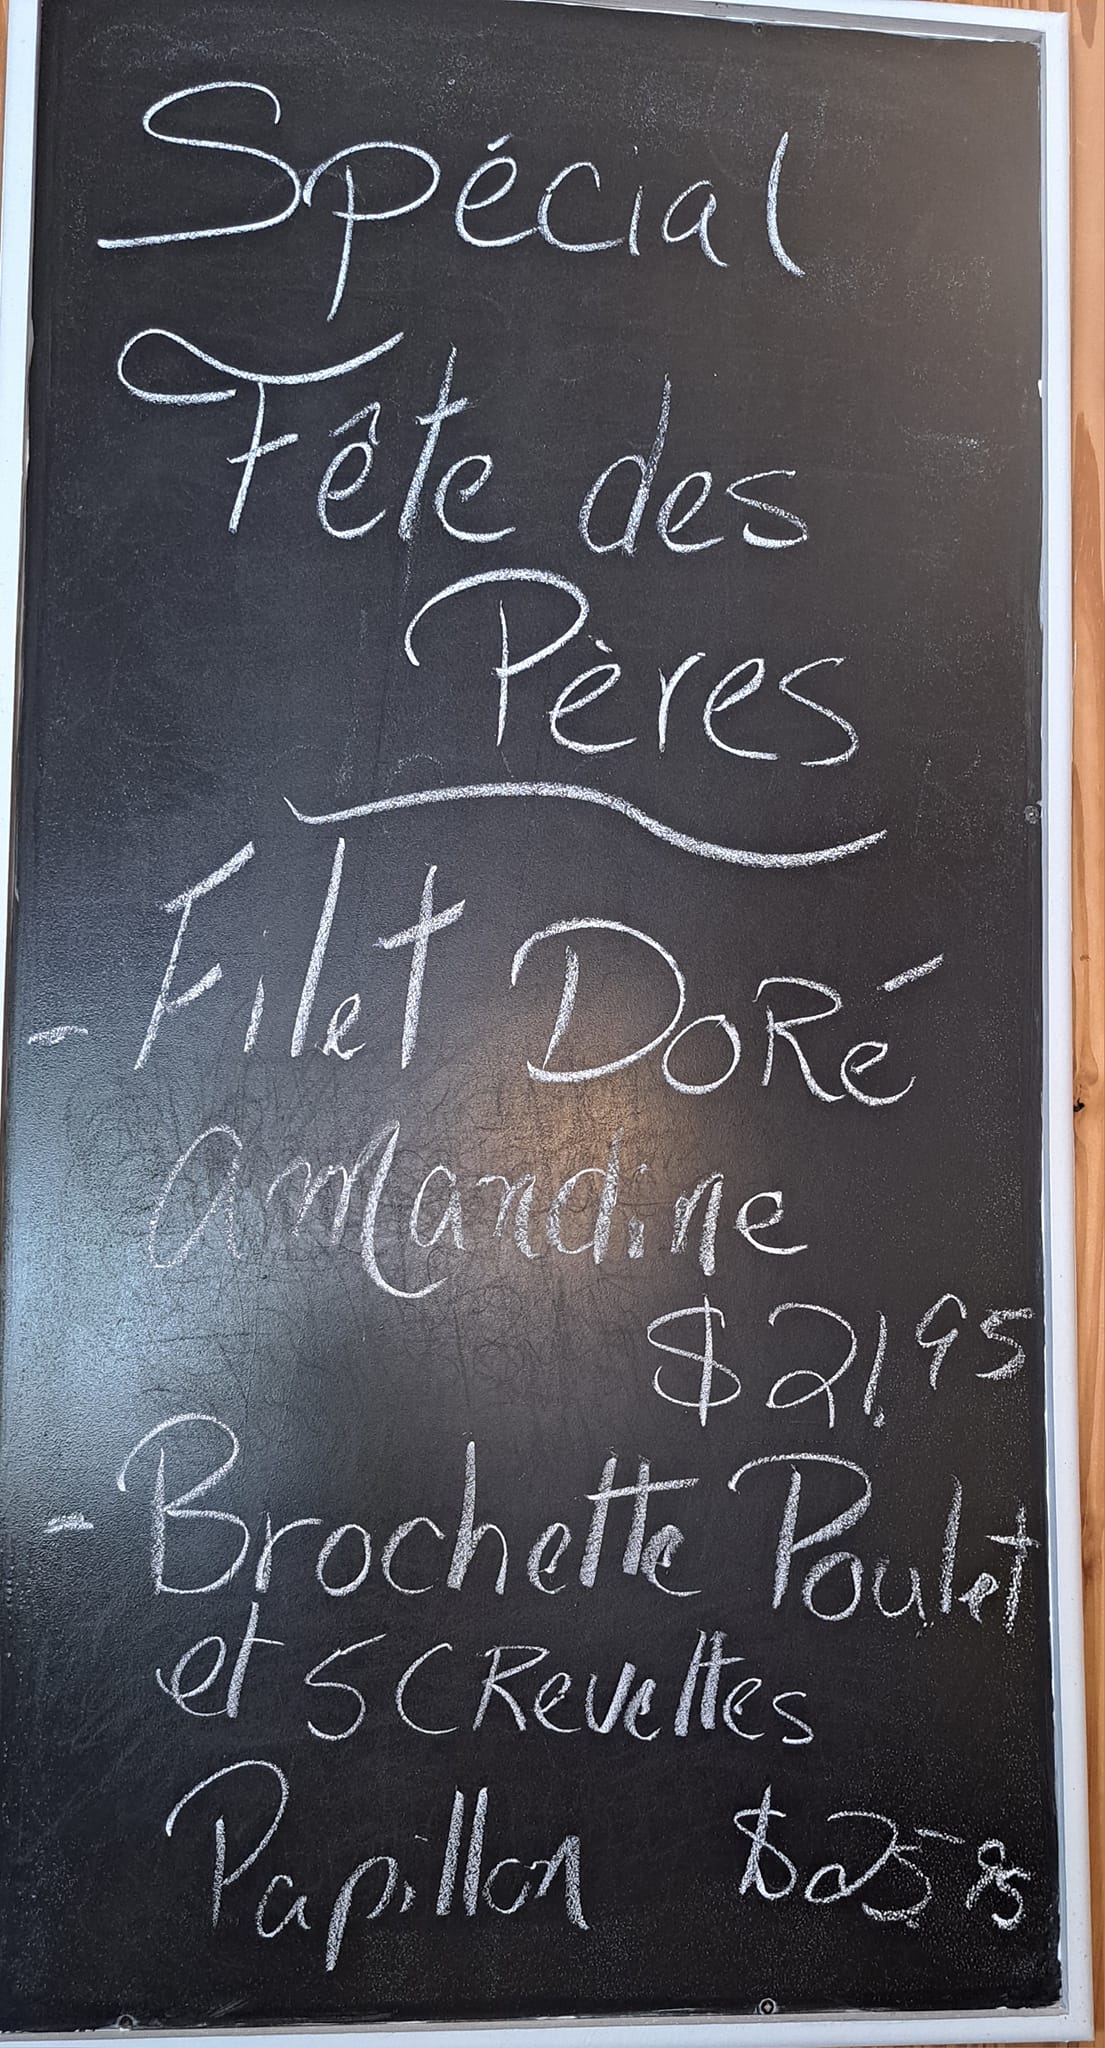 Spécial
Fête des
Pères
- Filet DoRé
amandine
$21.95
- Brochette Poulet
et 5 CRevettes
Papillon $25.95